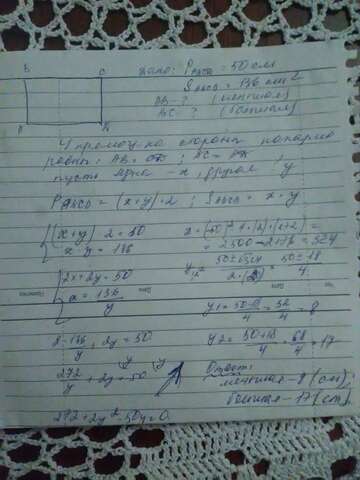 B C
A D
Дано: P ABCD = 50 см
S ABCD = 136 см 2
AB - ? (меньшая)
BC - ? (большая)
У прямоуг-ка стороны попарно
равны: AB = CD ; BC =
пусть одна - x, другая y
P ABCD = (x + y) · 2 ; S ABCD = x · y
{ (x + y) 2 = 50
x · y = 136
{ 2x + 2y = 50
x = 136 / y
2 · 136 / y + 2y = 50
272 / y + 2y = 50
272 + 2y² - 50y = 0
= 2500 - 2176 = 324
y1 = 50 - 18 / 4 = 32 / 4 = 8
y2 = 50 + 18 / 4 = 68 / 4 = 17
Ответ:
меньшая - 8 (см)
большая - 17 (см)